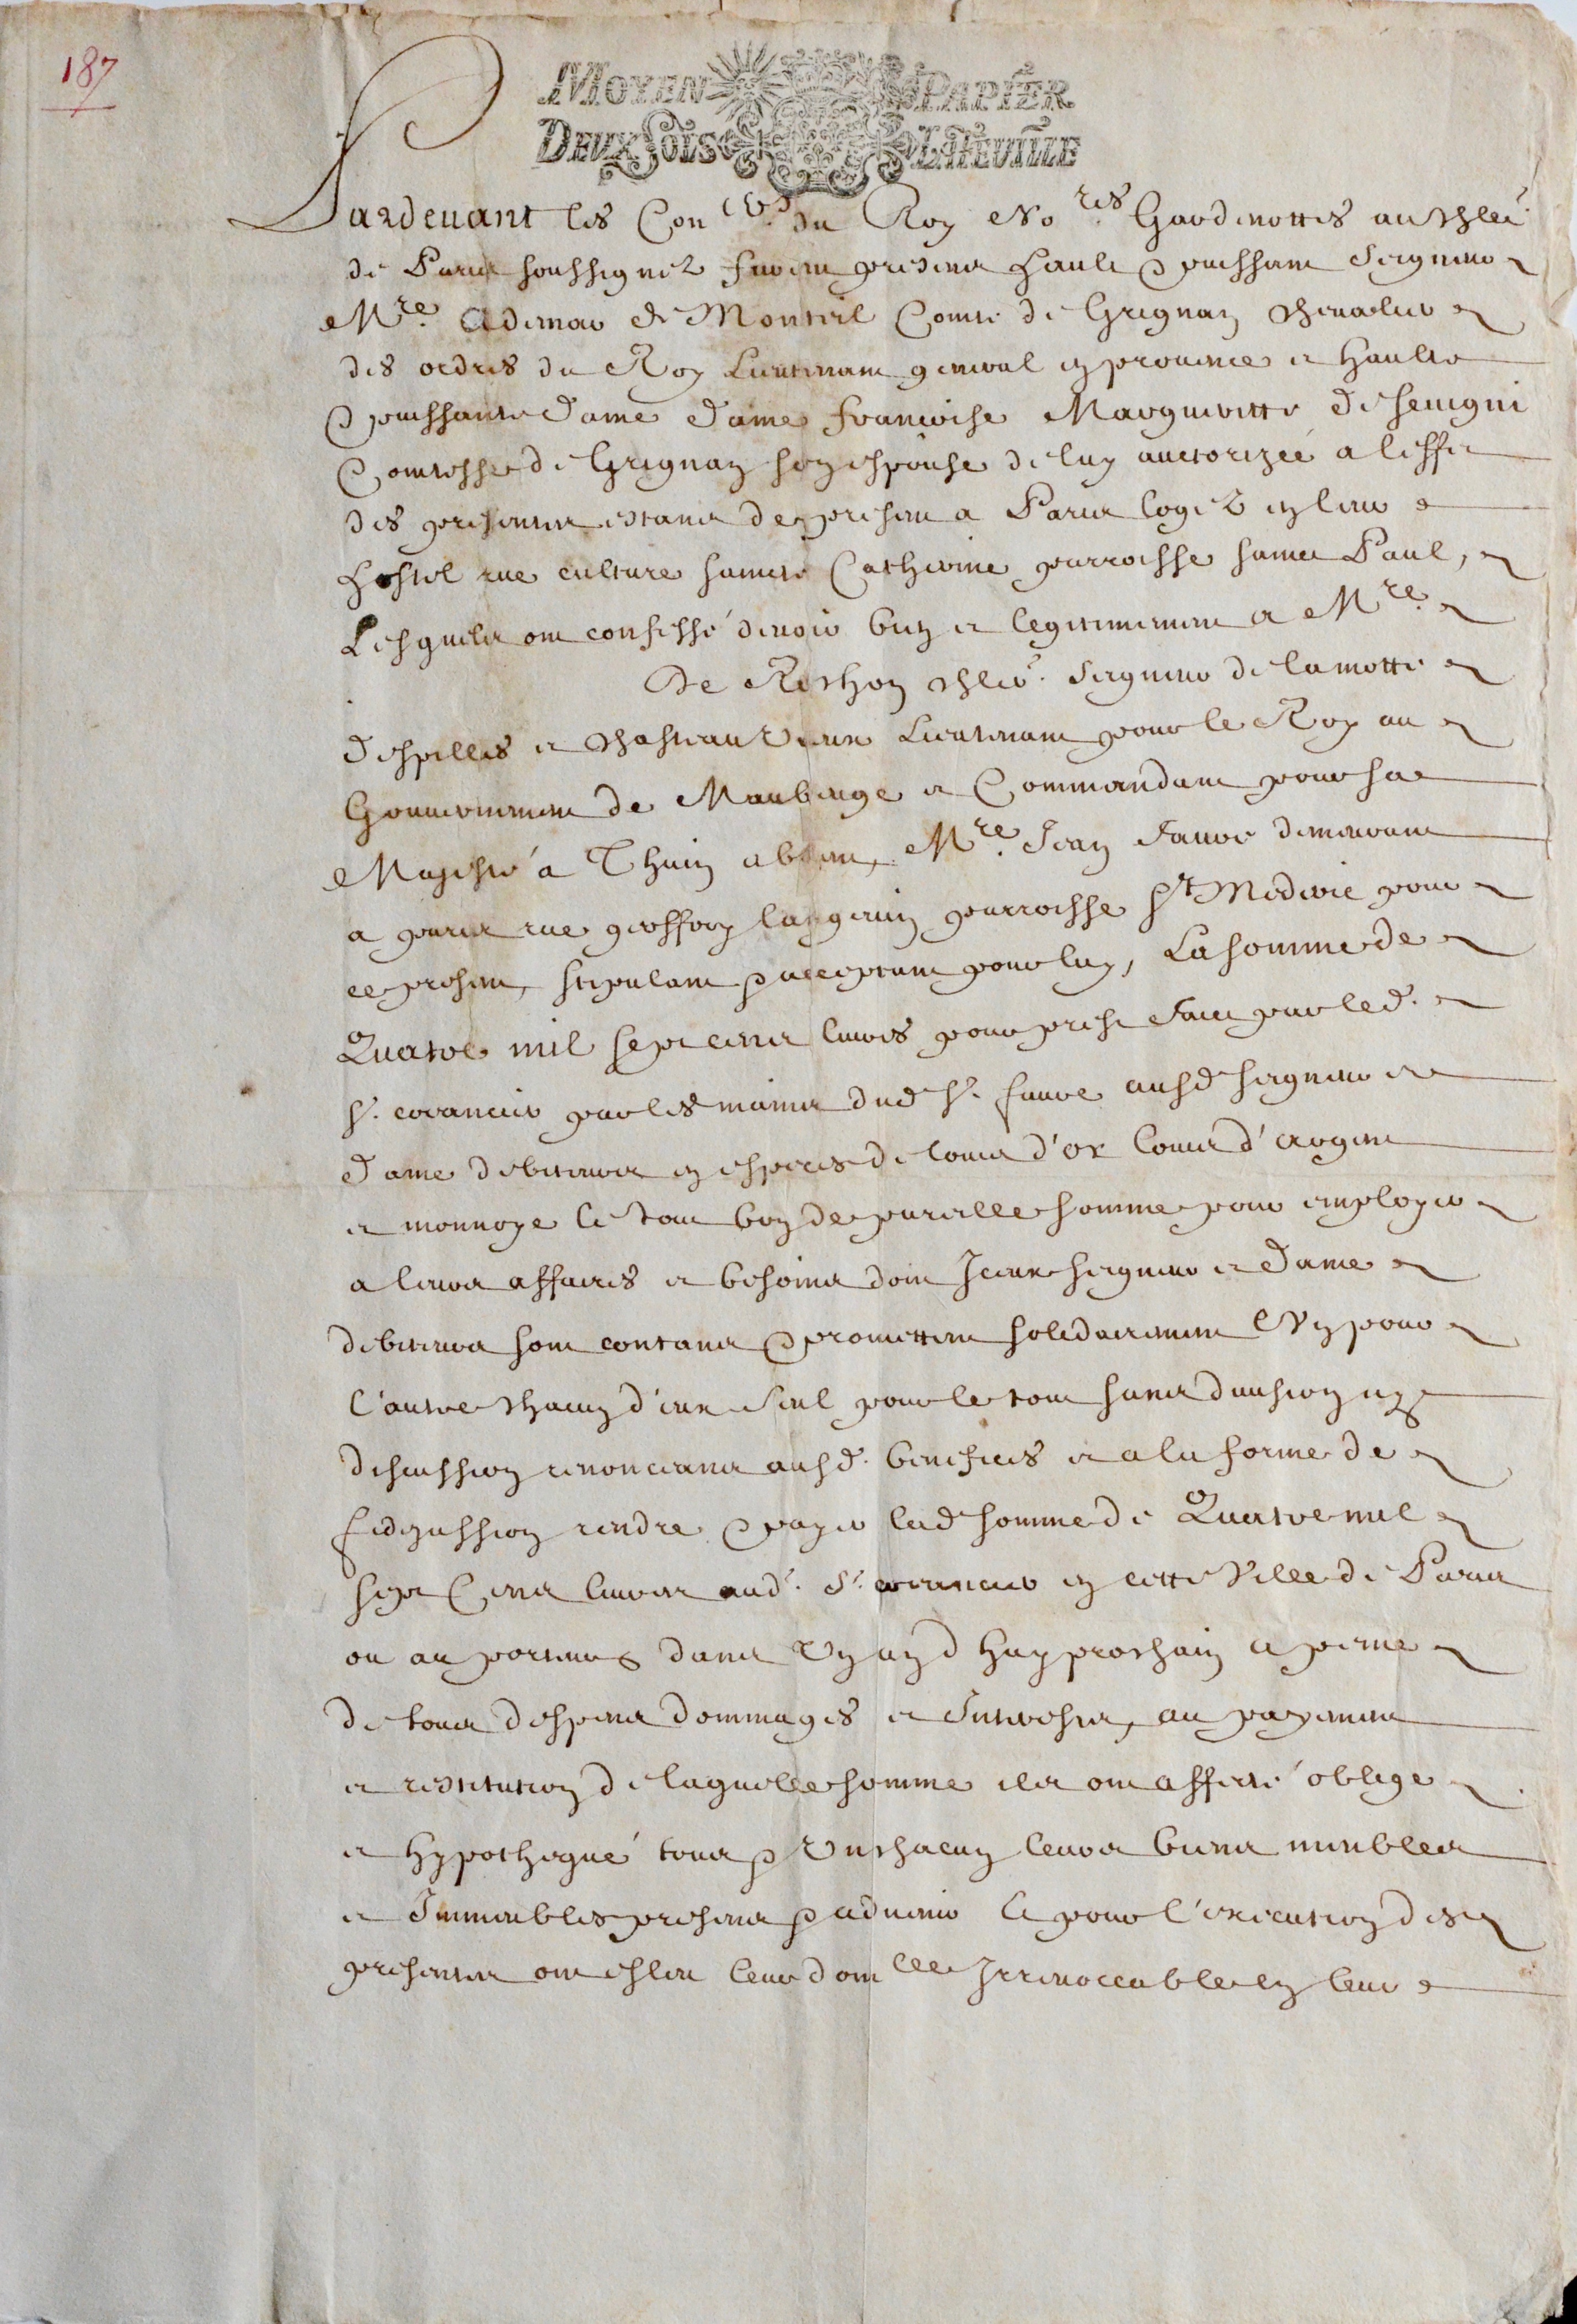 187
MOYEN PAPIER
DEUX SOLS LA FEUILLE
Pardevant les Con.ers du Roy No.res Gardenottes au Ch.let
de Paris soussignez furent presens hault & puissant Seigneur
M.re Ademar de Monteil Comte de Grignan chevalier
des ordres du Roy Lieutenant general en provence et haulte
& puissante Dame Dame francoise Marguerite de Sevigni
Comtesse de Grignan son espouse de luy auctorizée a l'effet
des presentes estans de present a Paris logez en leur
hostel rue culture saincte Catherine parroisse sainct Paul,
Lesquels ont confessé devoir bien et legitimement a M.re
De Rochon ch.ler Seigneur de lamotte
despilles et chasteauvieux Lieutenant pour le Roy au
Gouvernement de Maubeuge et Commandant pour sa
Majesté a Thuin absent, M.re Jean faure demeurant
a paris rue geoffroy langevin parroisse S.t Mederic pour
ce present, stipulant & acceptant pour luy, La somme de
Quatre mil sept cens livres pour prest faict par led.
S.r creancier par les mains dud S.r faure ausd seigneur et
Dame debiteurs en especes de louis d'or louis d'argent
et monnoye le tout bon de pareille somme pour employer
a leurs affaires et besoins dont Iceux seigneur et Dame
debiteurs sont contans & promettent solidairement l'Un pour
l'autre chacun d'eux seul pour le tout sans division ny
discussion renonceans ausd. benefices et a la forme de
fidejussion rendre & payer lad somme de Quatre mil
sept Cens livres aud. S.r creancier en cette Ville de Paris
ou au porteur dans Un an d huy prochain a peine
de tous despens dommages et Interests, au payement
et restitution de laquelle somme ils ont affecté oblige
et hypothequé tous & Uns chacun leurs biens meubles
et Immeubles presens & advenir Et pour l'execution des
presentes ont esleu leur dom.lle Irrevoccable en leur